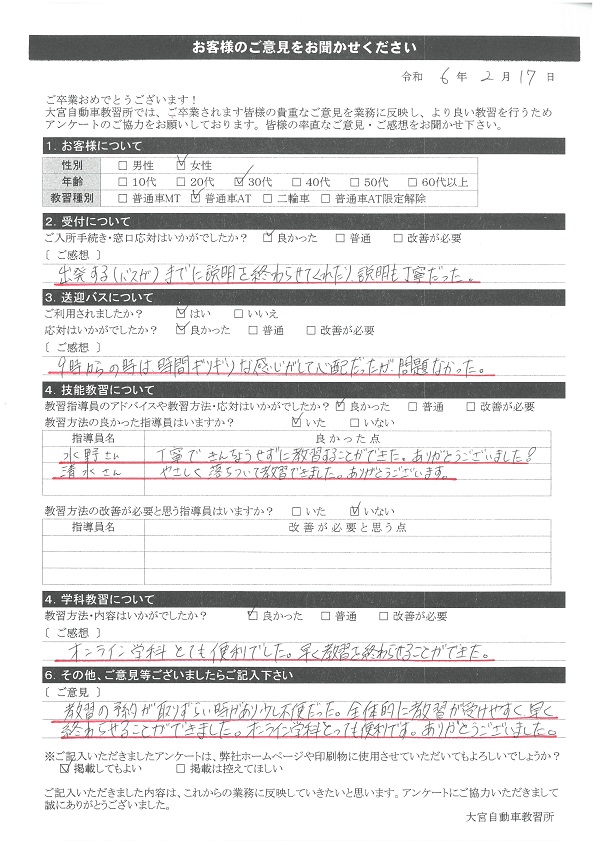 お客様のご意見をお聞かせください
令和 6 年 2 月 17 日
ご卒業おめでとうございます！
大宮自動車教習所では、ご卒業されます皆様の貴重なご意見を業務に反映し、より良い教習を行うため
アンケートのご協力をお願いしております。皆様の率直なご意見・ご感想をお聞かせ下さい。
1. お客様について
性別 □男性 ☑女性
年齢 □10代 □20代 ☑30代 □40代 □50代 □60代以上
教習種別 □普通車MT ☑普通車AT □二輪車 □普通車AT限定解除
2. 受付について
ご入所手続き・窓口応対はいかがでしたか？ ☑良かった □普通 □改善が必要
〔 ご感想 〕
出発する(バスが)までに説明を終わらせてくれたり説明も丁寧だった。
3. 送迎バスについて
ご利用されましたか？ ☑はい □いいえ
応対はいかがでしたか？ ☑良かった □普通 □改善が必要
〔 ご感想 〕
9時からの時は時間ギリギリな感じがして心配だったが問題なかった。
4. 技能教習について
教習指導員のアドバイスや教習方法・応対はいかがでしたか？ ☑良かった □普通 □改善が必要
教習方法の良かった指導員はいますか？ ☑いた □いない
指導員名 良かった点
水野さん 丁寧で きんちょうせずに教習することができた。ありがとうございました！
清水さん やさしく落ちついて教習できました。ありがとうございます。
教習方法の改善が必要と思う指導員はいますか？ □いた ☑いない
指導員名 改善が必要と思う点
4. 学科教習について
教習方法・内容はいかがでしたか？ ☑良かった □普通 □改善が必要
〔 ご感想 〕
オンライン学科とても便利でした。早く教習を終わらせることができた。
6. その他、ご意見等ございましたらご記入下さい
〔 ご意見 〕
教習の予約が取りずらい時があり少し不便だった。全体的に教習が受けやすく早く
終わらせることができました。オンライン学科とっても便利です。ありがとうございました。
※ご記入いただきましたアンケートは、弊社ホームページや印刷物に使用させていただいてもよろしいでしょうか？
☑掲載してもよい □掲載は控えてほしい
ご記入いただきました内容は、これからの業務に反映していきたいと思います。アンケートにご協力いただきまして
誠にありがとうございました。
大宮自動車教習所